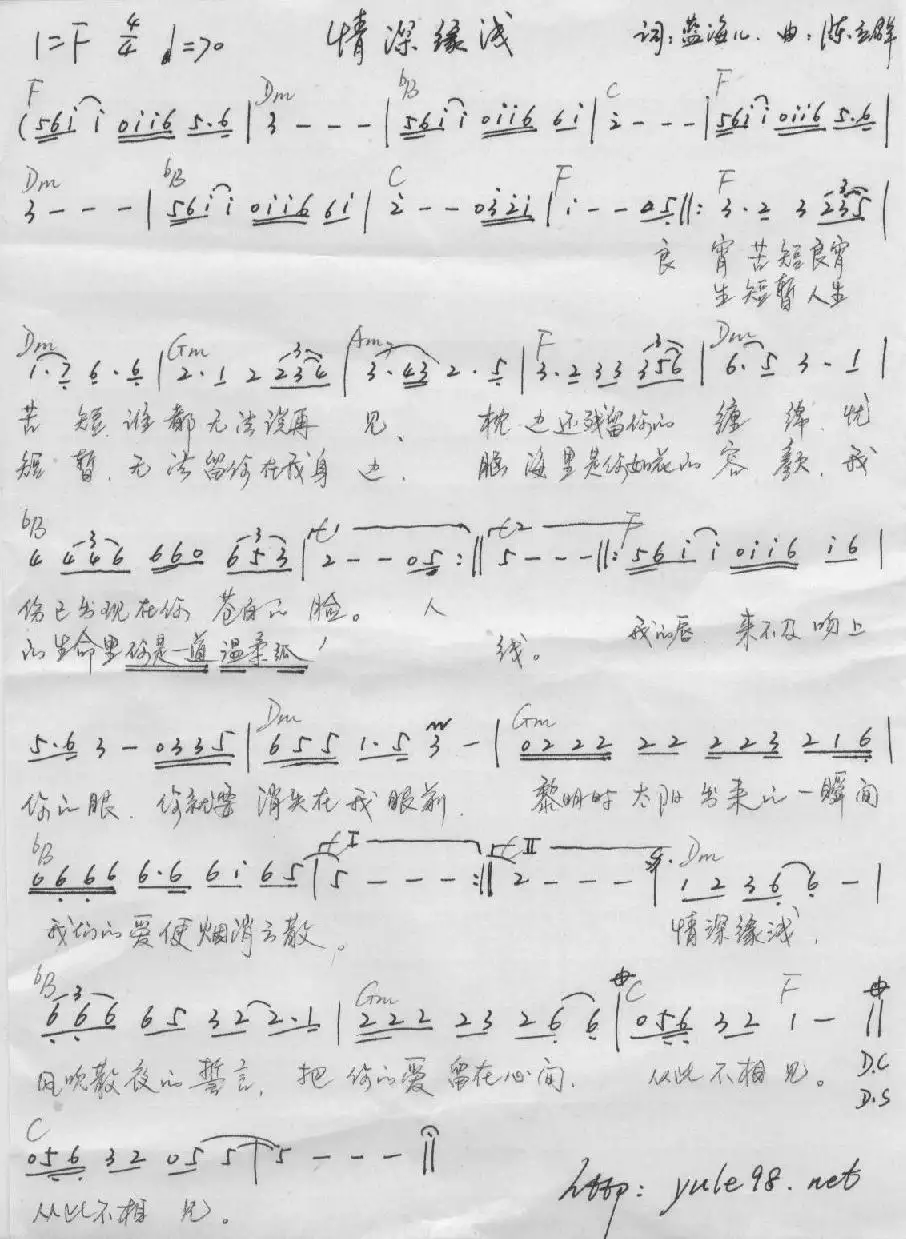 1=F 4/4 ♩=70 情深缘浅 词:蓝海儿. 曲:陈玉群
F Dm bB C F
(561 1 0116 5.6 | 3 - - - | 561 1 0116 61 | 2 - - - | 561 1 0116 5.6 |
Dm bB C F F
3 - - - | 561 1 0116 61 | 2 - - 0321 | 1 - - 05 ||: 3.2 3 235 |
良 宵苦短良宵
生短暂人生
Dm Gm Am7 F Dm
1.7 6.6 | 2.1 2 234 | 3.43 2.5 | 3.2 33 356 | 6.5 3.1 |
苦 短.谁都无法说再 见、 枕边还残留你的 缠 绵.忧
短 暂.无法留你在我身 边. 脑海里是你如花的 容 颜.我
bB F
4 446 660 653 | 2 - - 05 :|| 5 - - - ||: 561 1 0116 16 |
伤已出现在你 苍白的脸。 人
的生命里你是一道 温柔弧 线。 我的唇 来不及吻上
Dm Gm
5.6 3 - 0335 | 655 1.5 3 - | 0222 22 223 216 |
你的眼. 你就要 消失在我眼前. 黎明时 太阳出来的一瞬间
bB I II Dm
6666 6.6 61 65 | 5 - - - :|| 2 - - - | 12 36 6 - |
我们的爱便烟消云散。 情深缘浅.
bB Gm C F
666 65 32 2.1 | 222 23 26 6 | 056 32 1 - ||
风吹散夜的誓言. 把你的爱留在心间. 从此不相见。 D.C
D.S
C
056 32 05 5 | 5 - - - ||
从此不相 见。
http: yule98.net